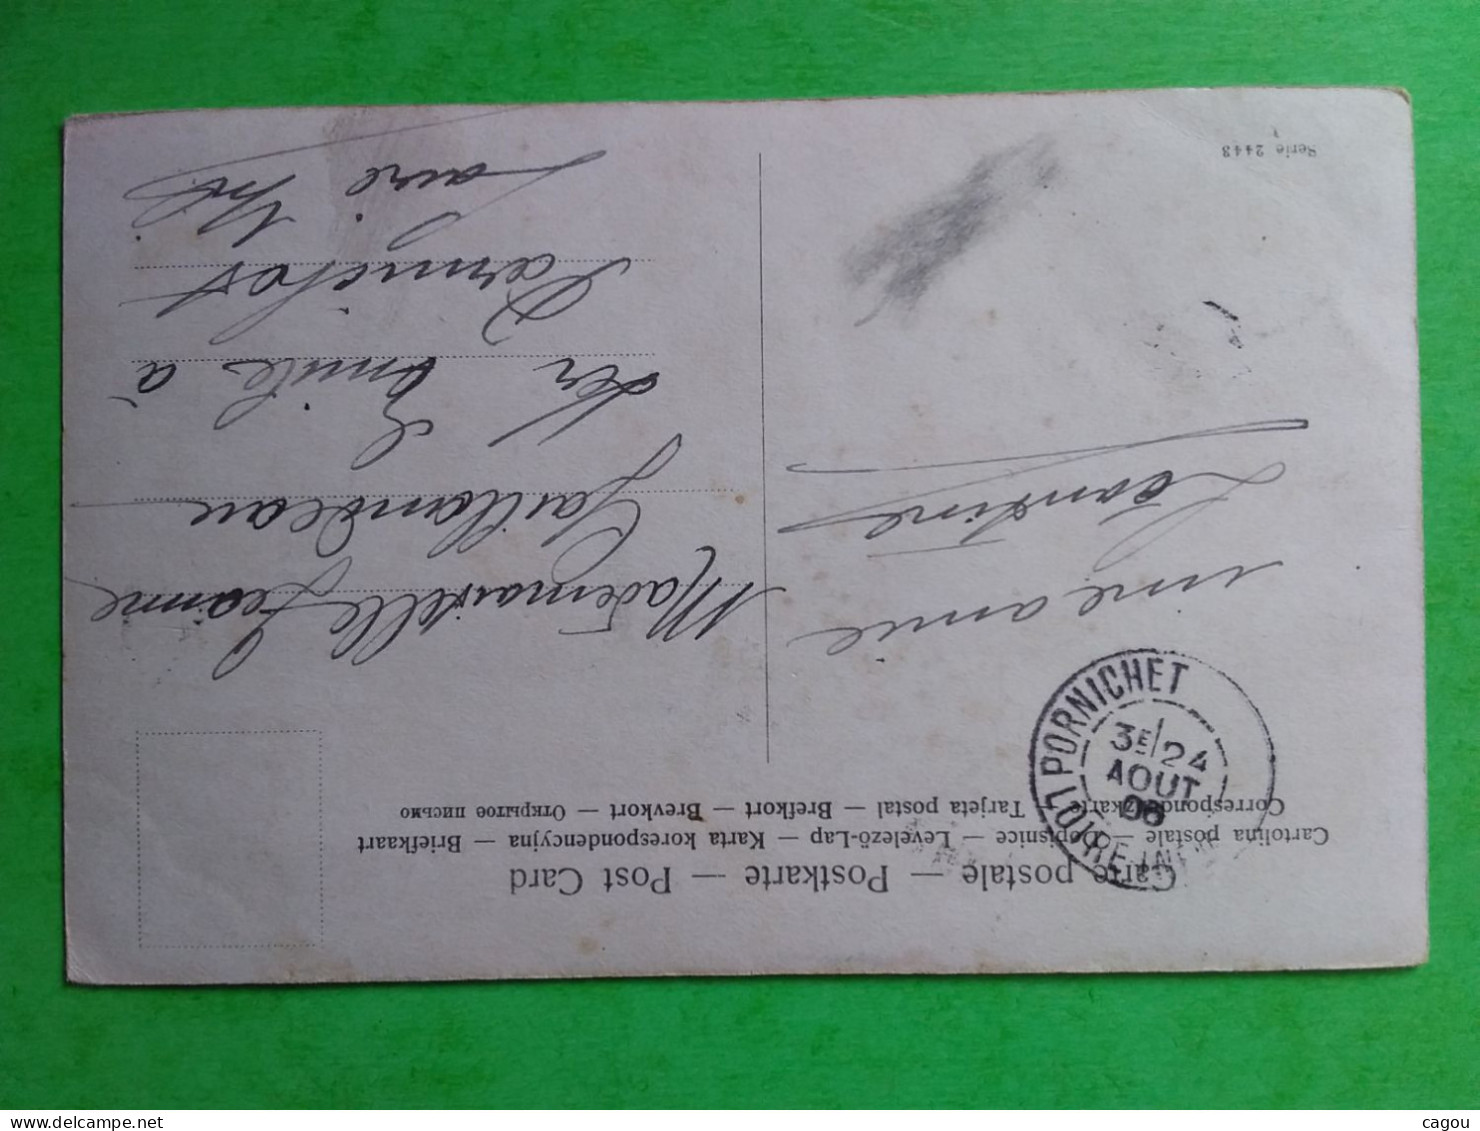 Carte postale — Postkarte — Post Card
Cartolina postale — Dopisnice — Levelező-Lap — Karta korespondencyjna — Briefkaart
Correspondenzkarte — Tarjeta postal — Brefkort — Brevkort — Открытое письмо
PORNICHET
3E/24
AOUT
06
LOIRE-INF
une amie
Léontine
Mademoiselle Jeanne
Gaillandeau
Ker Emile à
Pornichet
Loire Inf
Serie 2443
www.delcampe.net
cagou